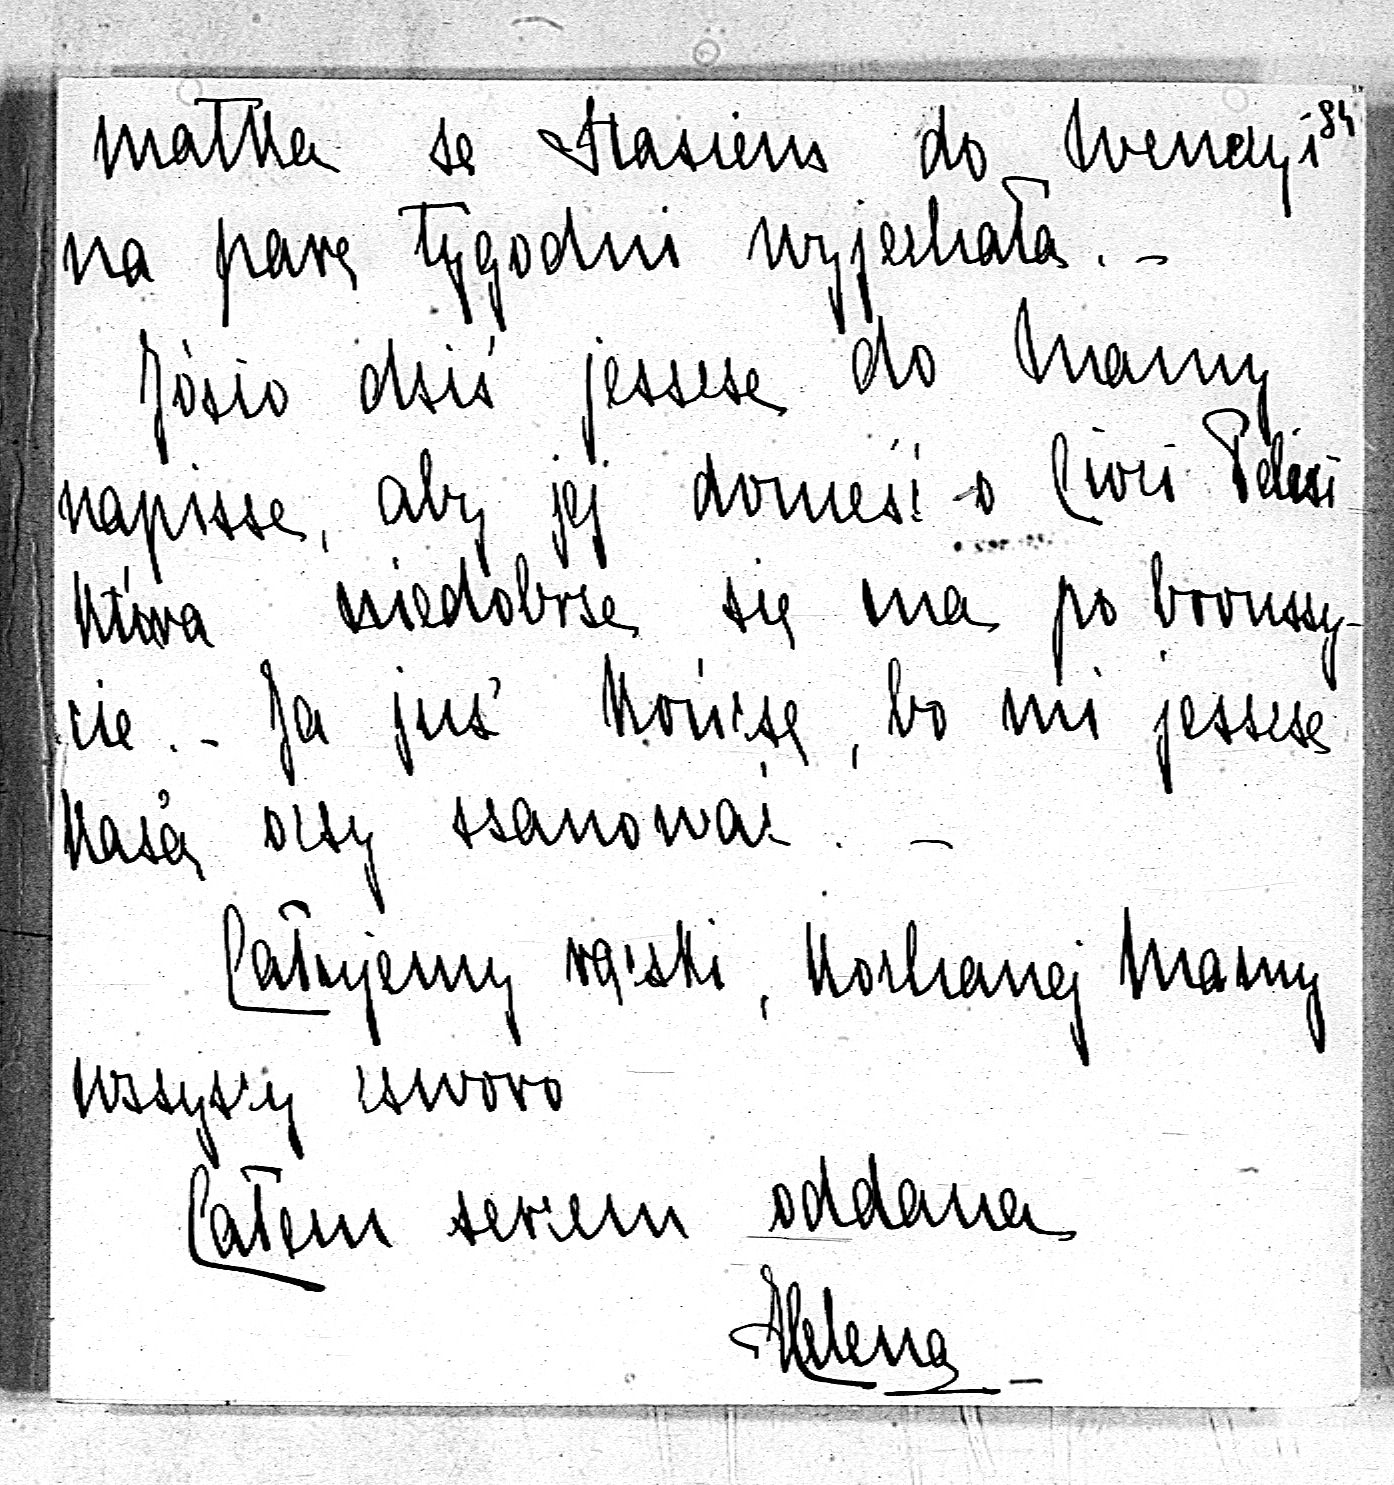 84
matka ze Stasiem do Wenecyi
na parę tygodni wyjechała. –
Józio dziś jeszcze do Mamy
napisze, aby jej donieść o Cioci Felisi
która niedobrze się ma po bronszy-
cie. – Ja już kończę, bo mi jeszcze
każą oczy szanować. –
Całujemy rączki, kochanej Mamy
wszyscy czworo
Całem sercem oddana
Helena –